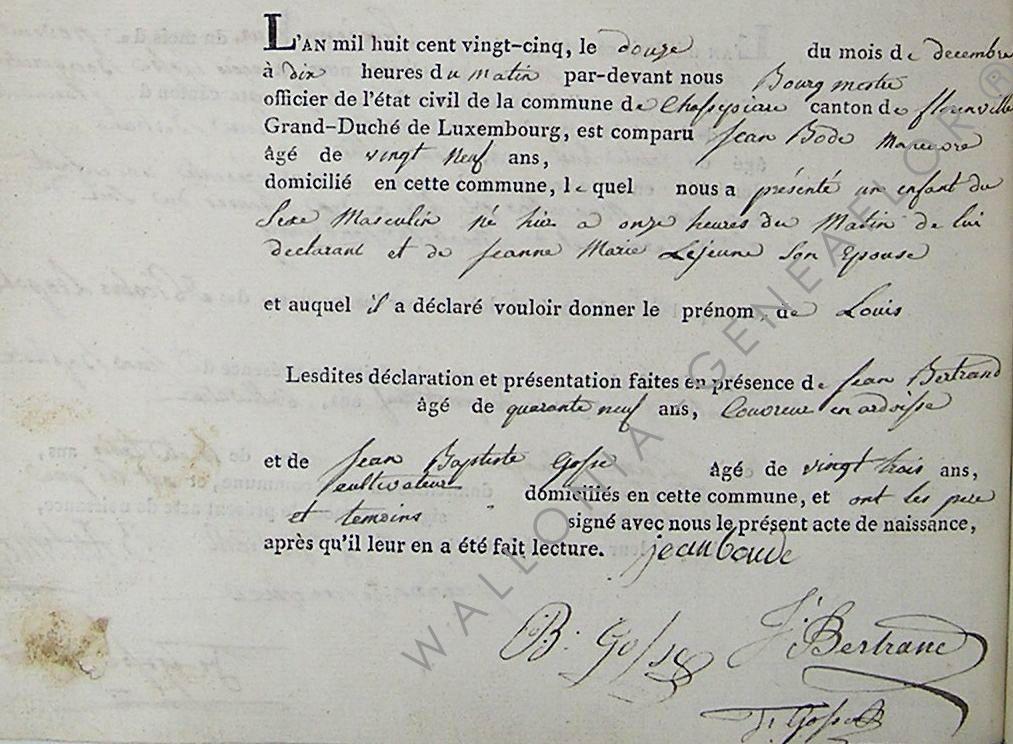 L'AN mil huit cent vingt-cinq, le douze du mois de decembre
à dix heures du matin par-devant nous Bourgmestre
officier de l'état civil de la commune de Chassepierre canton de florenville
Grand-Duché de Luxembourg, est comparu Jean Bode Manuvre
âgé de vingt Neuf ans,
domicilié en cette commune, le quel nous a présenté un enfant du
Sexe Masculin né hier a onze heures du Matin de lui
declarant et de jeanne Marie Lejeune Son Epouse
et auquel il a déclaré vouloir donner le prénom de Louis
Lesdites déclaration et présentation faites en présence de Jean Bertrand
âgé de quarante neuf ans, Couvreur en ardoisse
et de Jean Baptiste Gosse âgé de vingt trois ans,
cultivateur domiciliés en cette commune, et ont les pere
et temoins signé avec nous le présent acte de naissance,
après qu'il leur en a été fait lecture. jean baude
B. Gosse J. Bertrand
WALLONIA GENEAFLOR ®